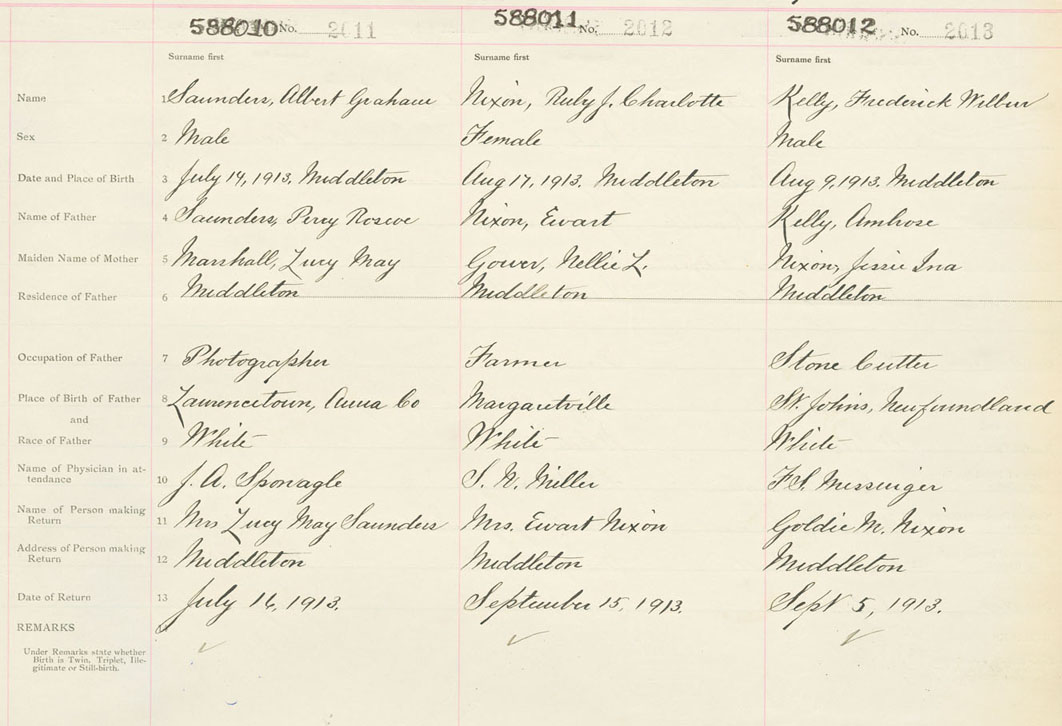 588010 No. 2011 588011 No. 2012 588012 No. 2013
Surname first Surname first Surname first
Name 1 Saunders, Albert Graham Nixon, Ruby J. Charlotte Kelly, Frederick Wilbur
Sex 2 Male Female Male
Date and Place of Birth 3 July 14, 1913. Middleton Aug 17, 1913. Middleton Aug 9, 1913. Middleton
Name of Father 4 Saunders, Percy Roscoe Nixon, Ewart Kelly, Ambrose
Maiden Name of Mother 5 Marshall, Lucy May Gower, Nellie L. Nixon, Jessie Ina
Residence of Father 6 Middleton Middleton Middleton
Occupation of Father 7 Photographer Farmer Stone Cutter
Place of Birth of Father 8 Lawrencetown, Anna Co Margaretville St. Johns, Newfoundland
and
Race of Father 9 White White White
Name of Physician in at-
tendance 10 J. A. Sponagle S. N. Miller F. S. Messinger
Name of Person making
Return 11 Mrs Lucy May Saunders Mrs. Ewart Nixon Goldie M. Nixon
Address of Person making
Return 12 Middleton Middleton Middleton
Date of Return 13 July 16, 1913. September 15, 1913. Sept 5, 1913.
REMARKS
Under Remarks state whether
Birth is Twin, Triplet, Ille-
gitimate or Still-birth.